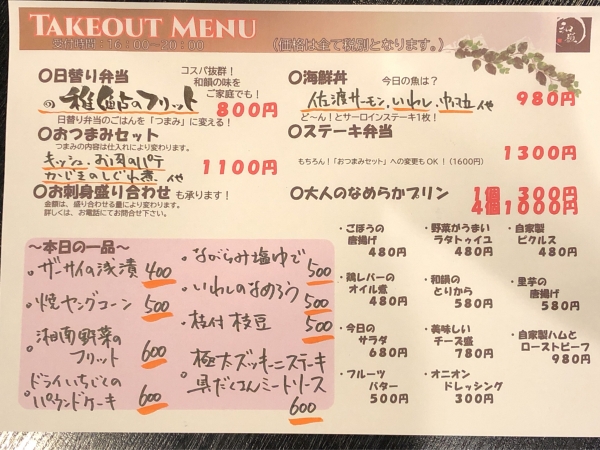 TAKEOUT MENU
受付時間:16:00~20:00
(価格は全て税別となります。)
和韻
○日替り弁当
コスパ抜群!
和韻の味を
ご家庭でも!
の 稚鮎のフリット
800円
日替り弁当のごはんを「つまみ」に変える!
○おつまみセット
つまみの内容は仕入れにより変わります。
キッシュ、お肉のパテ
かじきのしぐれ煮、etc
1100円
○お刺身盛り合わせ も承ります!
金額は、盛り合わせる量により変わります。
詳しくは、お電話にてお問合せ下さい。
○海鮮丼
今日の魚は?
佐渡サーモン、いわし、帆立 etc
980円
ど~ん!とサーロインステーキ1枚!
○ステーキ弁当
1300円
もちろん!「おつまみセット」への変更もOK!(1600円)
○大人のなめらかプリン
1個 300円
4個1000円
~本日の一品~
・ザーサイの浅漬 400
・焼ヤングコーン 500
・湘南野菜の
フリット 600
・ドライいちじくの
パウンドケーキ 600
・ながらみ塩ゆで 500
・いわしのなめろう 500
・枝付枝豆 500
・極太ズッキーニステーキ
具だくさんミートソース
600
・ごぼうの
唐揚げ
480円
・野菜がうまい
ラタトゥイユ
480円
・自家製
ピクルス
480円
・鶏レバーの
オイル煮
480円
・和韻の
とりから
580円
・里芋の
唐揚げ
580円
・今日の
サラダ
680円
・美味しい
チーズ盛
780円
・自家製ハムと
ローストビーフ
980円
・フルーツ
バター
500円
・オニオン
ドレッシング
300円